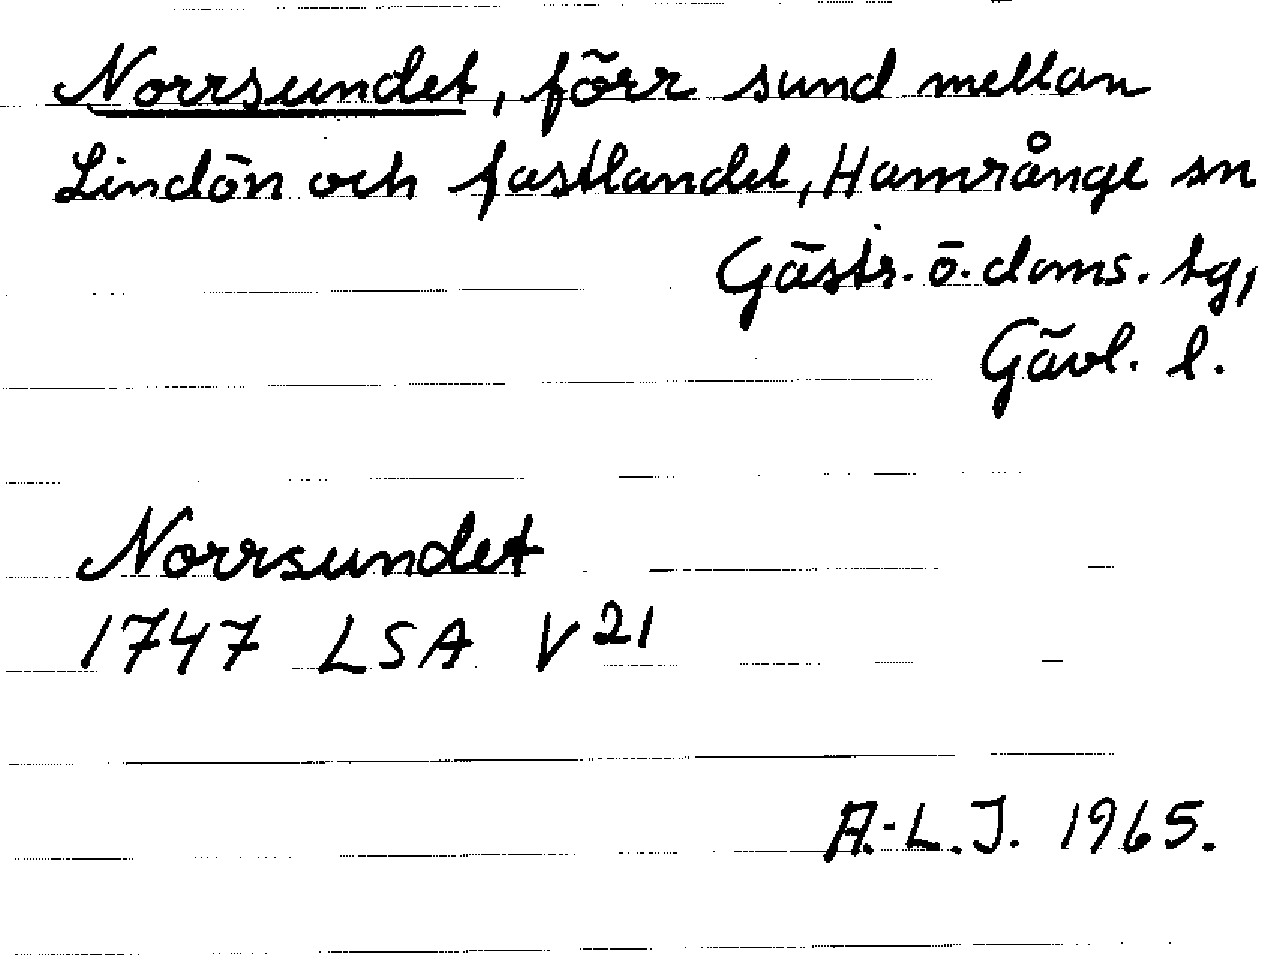 Norrsundet, förr sund mellan
Lindön och fastlandet, Hamrånge sn
Gästr. ö. doms. tg,
Gävl. l.
Norrsundet
1747 LSA V 21
A.-L.J. 1965.